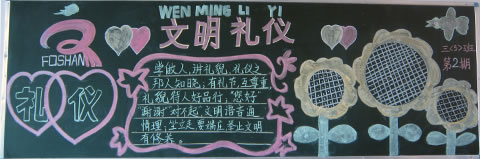 WEN MING LI YI
文明礼仪
FOSHAN
礼仪
学做人,讲礼貌,礼仪之
邦人知晓;有礼节,互尊重,
礼貌待人好品行;"您好"
"谢谢"对不起,文明语言通
情理;
举止文明
有修养。
三(5)班
第2期